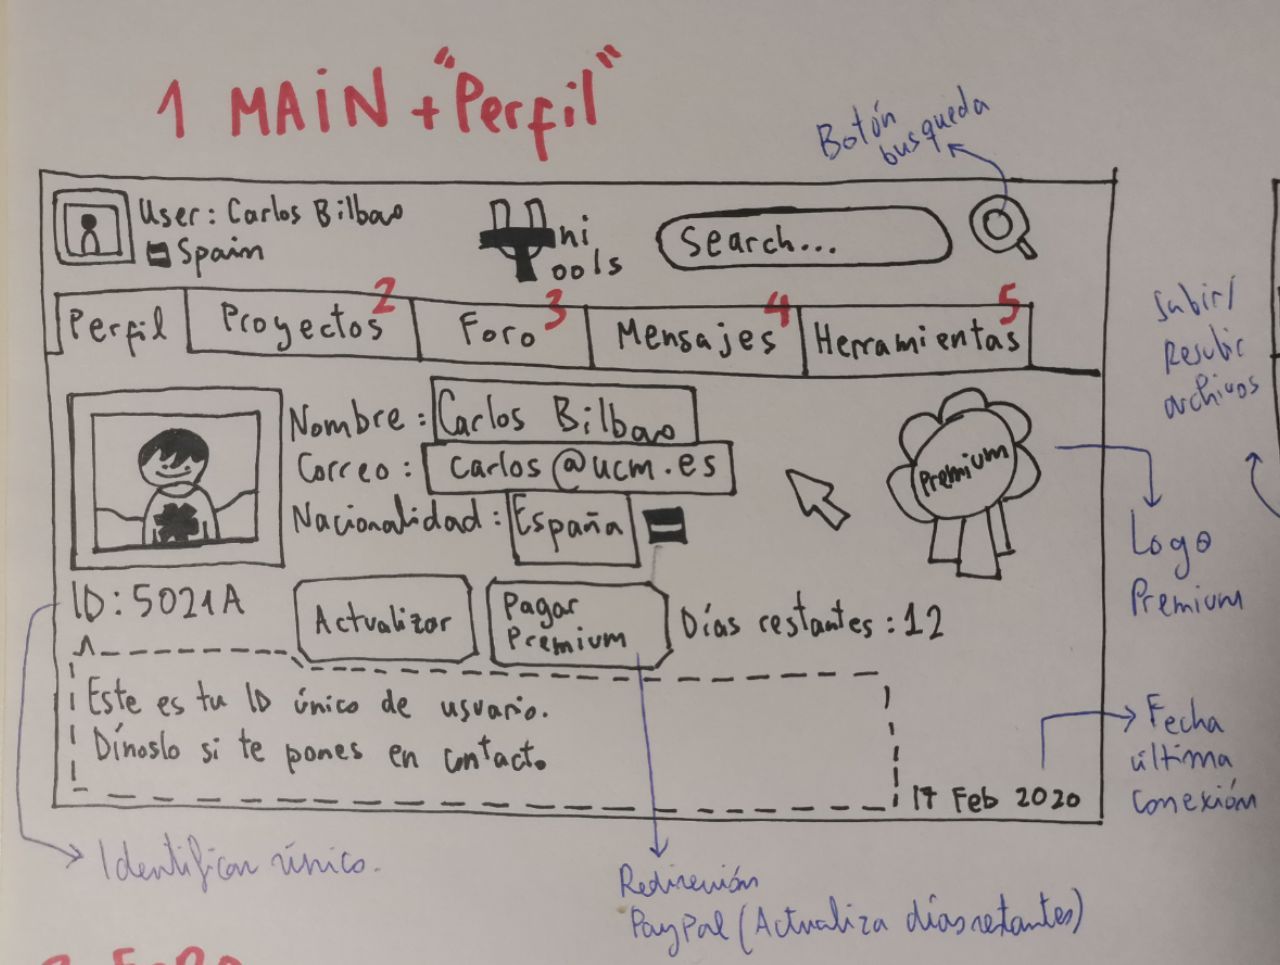 1 MAIN + "Perfil"
Botón
busqueda
User: Carlos Bilbao
Spain
Uni
Tools
Search...
Perfil
Proyectos 2
Foro 3
Mensajes 4
Herramientas 5
Subir/
Resubir
archivos
Nombre: Carlos Bilbao
Correo: carlos@ucm.es
Nacionalidad: España
Premium
Logo
Premium
ID: 5021A
Actualizar
Pagar
Premium
Días restantes: 12
Este es tu ID único de usuario.
Dínoslo si te pones en contacto
17 Feb 2020
Fecha
última
conexión
Identificar único.
Redirección
PayPal (Actualiza días restantes)